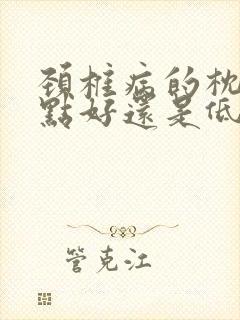 頚椎病的枕
點好還是低
管克江